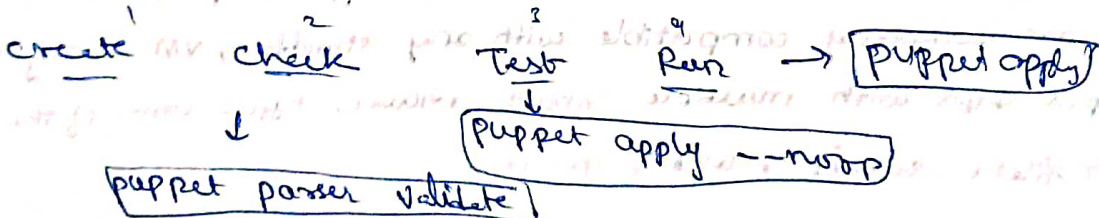 1 2 3 4
create check Test Run → puppet apply
↓ ↓
puppet apply --noop
puppet parser validate